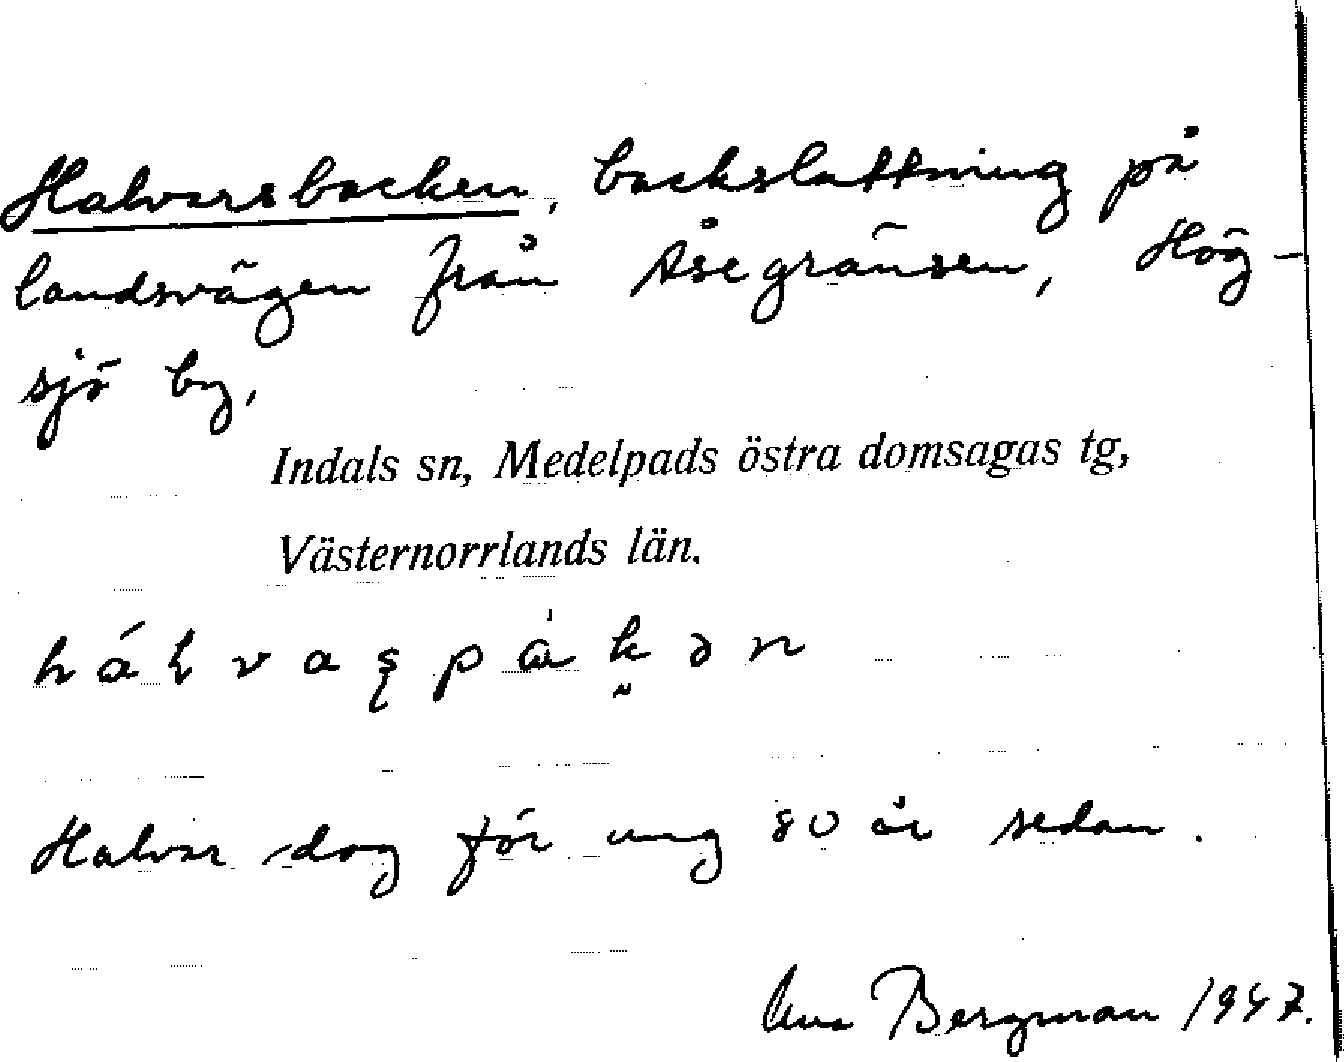 Halvarsbacken, backsluttning på
landsvägen från Åsegränsen, Hög-
sjö by,
Indals sn, Medelpads östra domsagas tg,
Västernorrlands län.
Halvar dog för ung 80 år sedan.
Bergman 1947.